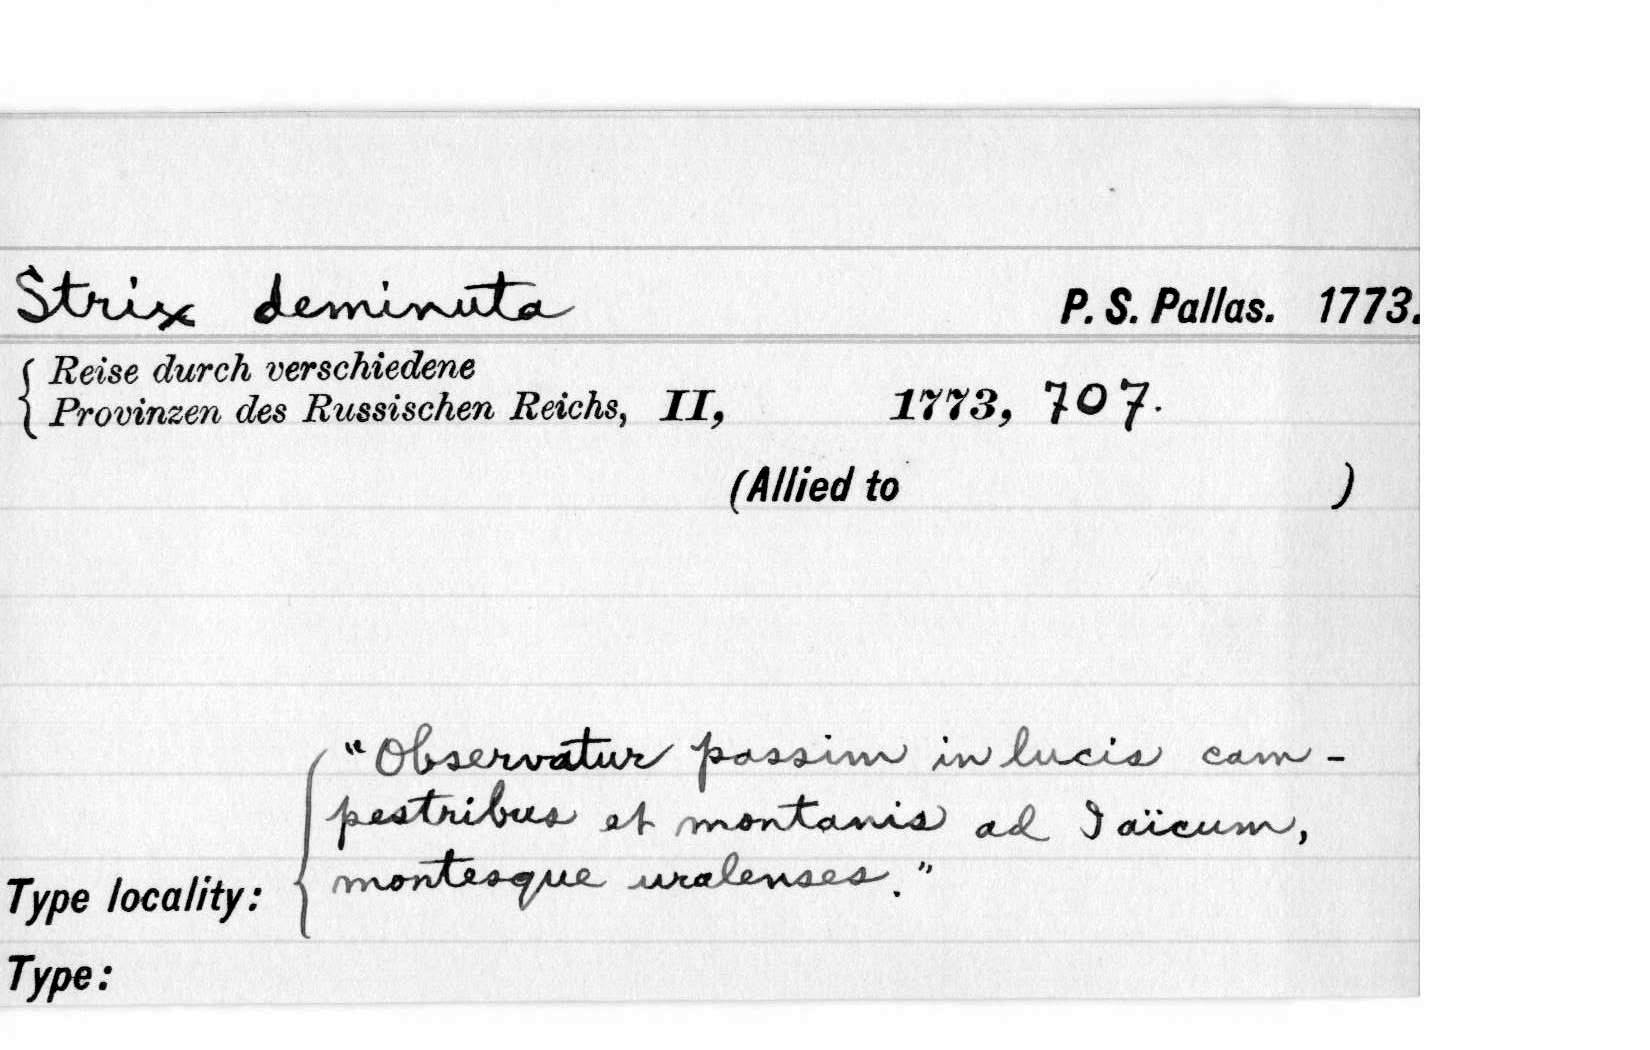 Strix deminuta P. S. Pallas. 1773.
Reise durch verschiedene
Provinzen des Russischen Reichs, II, 1773, 707.
(Allied to )
"Observatur passim in lucis cam-
pestribus et montanis ad Iaïcum,
Type locality: montesque uralenses."
Type: